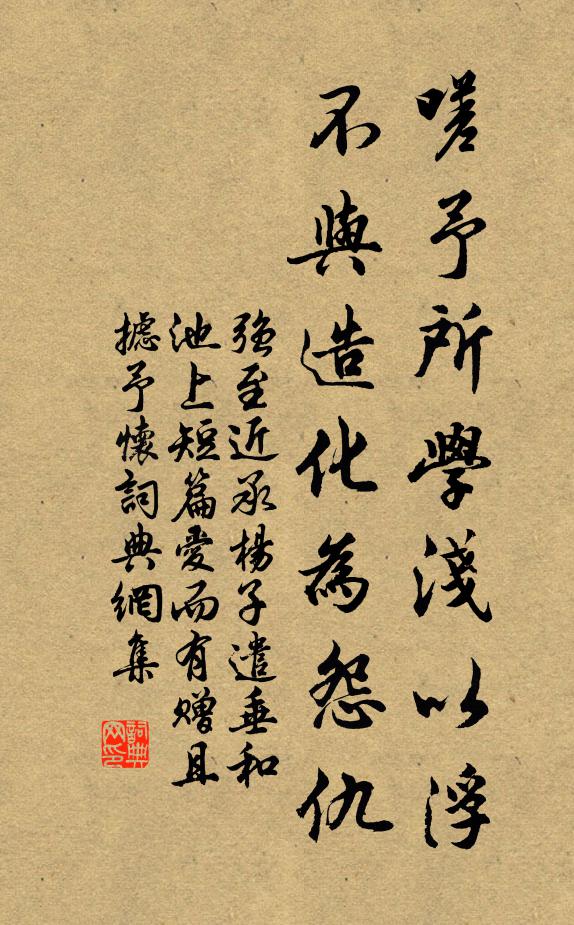 嗟予所學淺以浮
不與造化為怨仇
強至近承楊子遣垂和
池上短篇愛而有贈且
攄予懷詞典網集
詞典網印